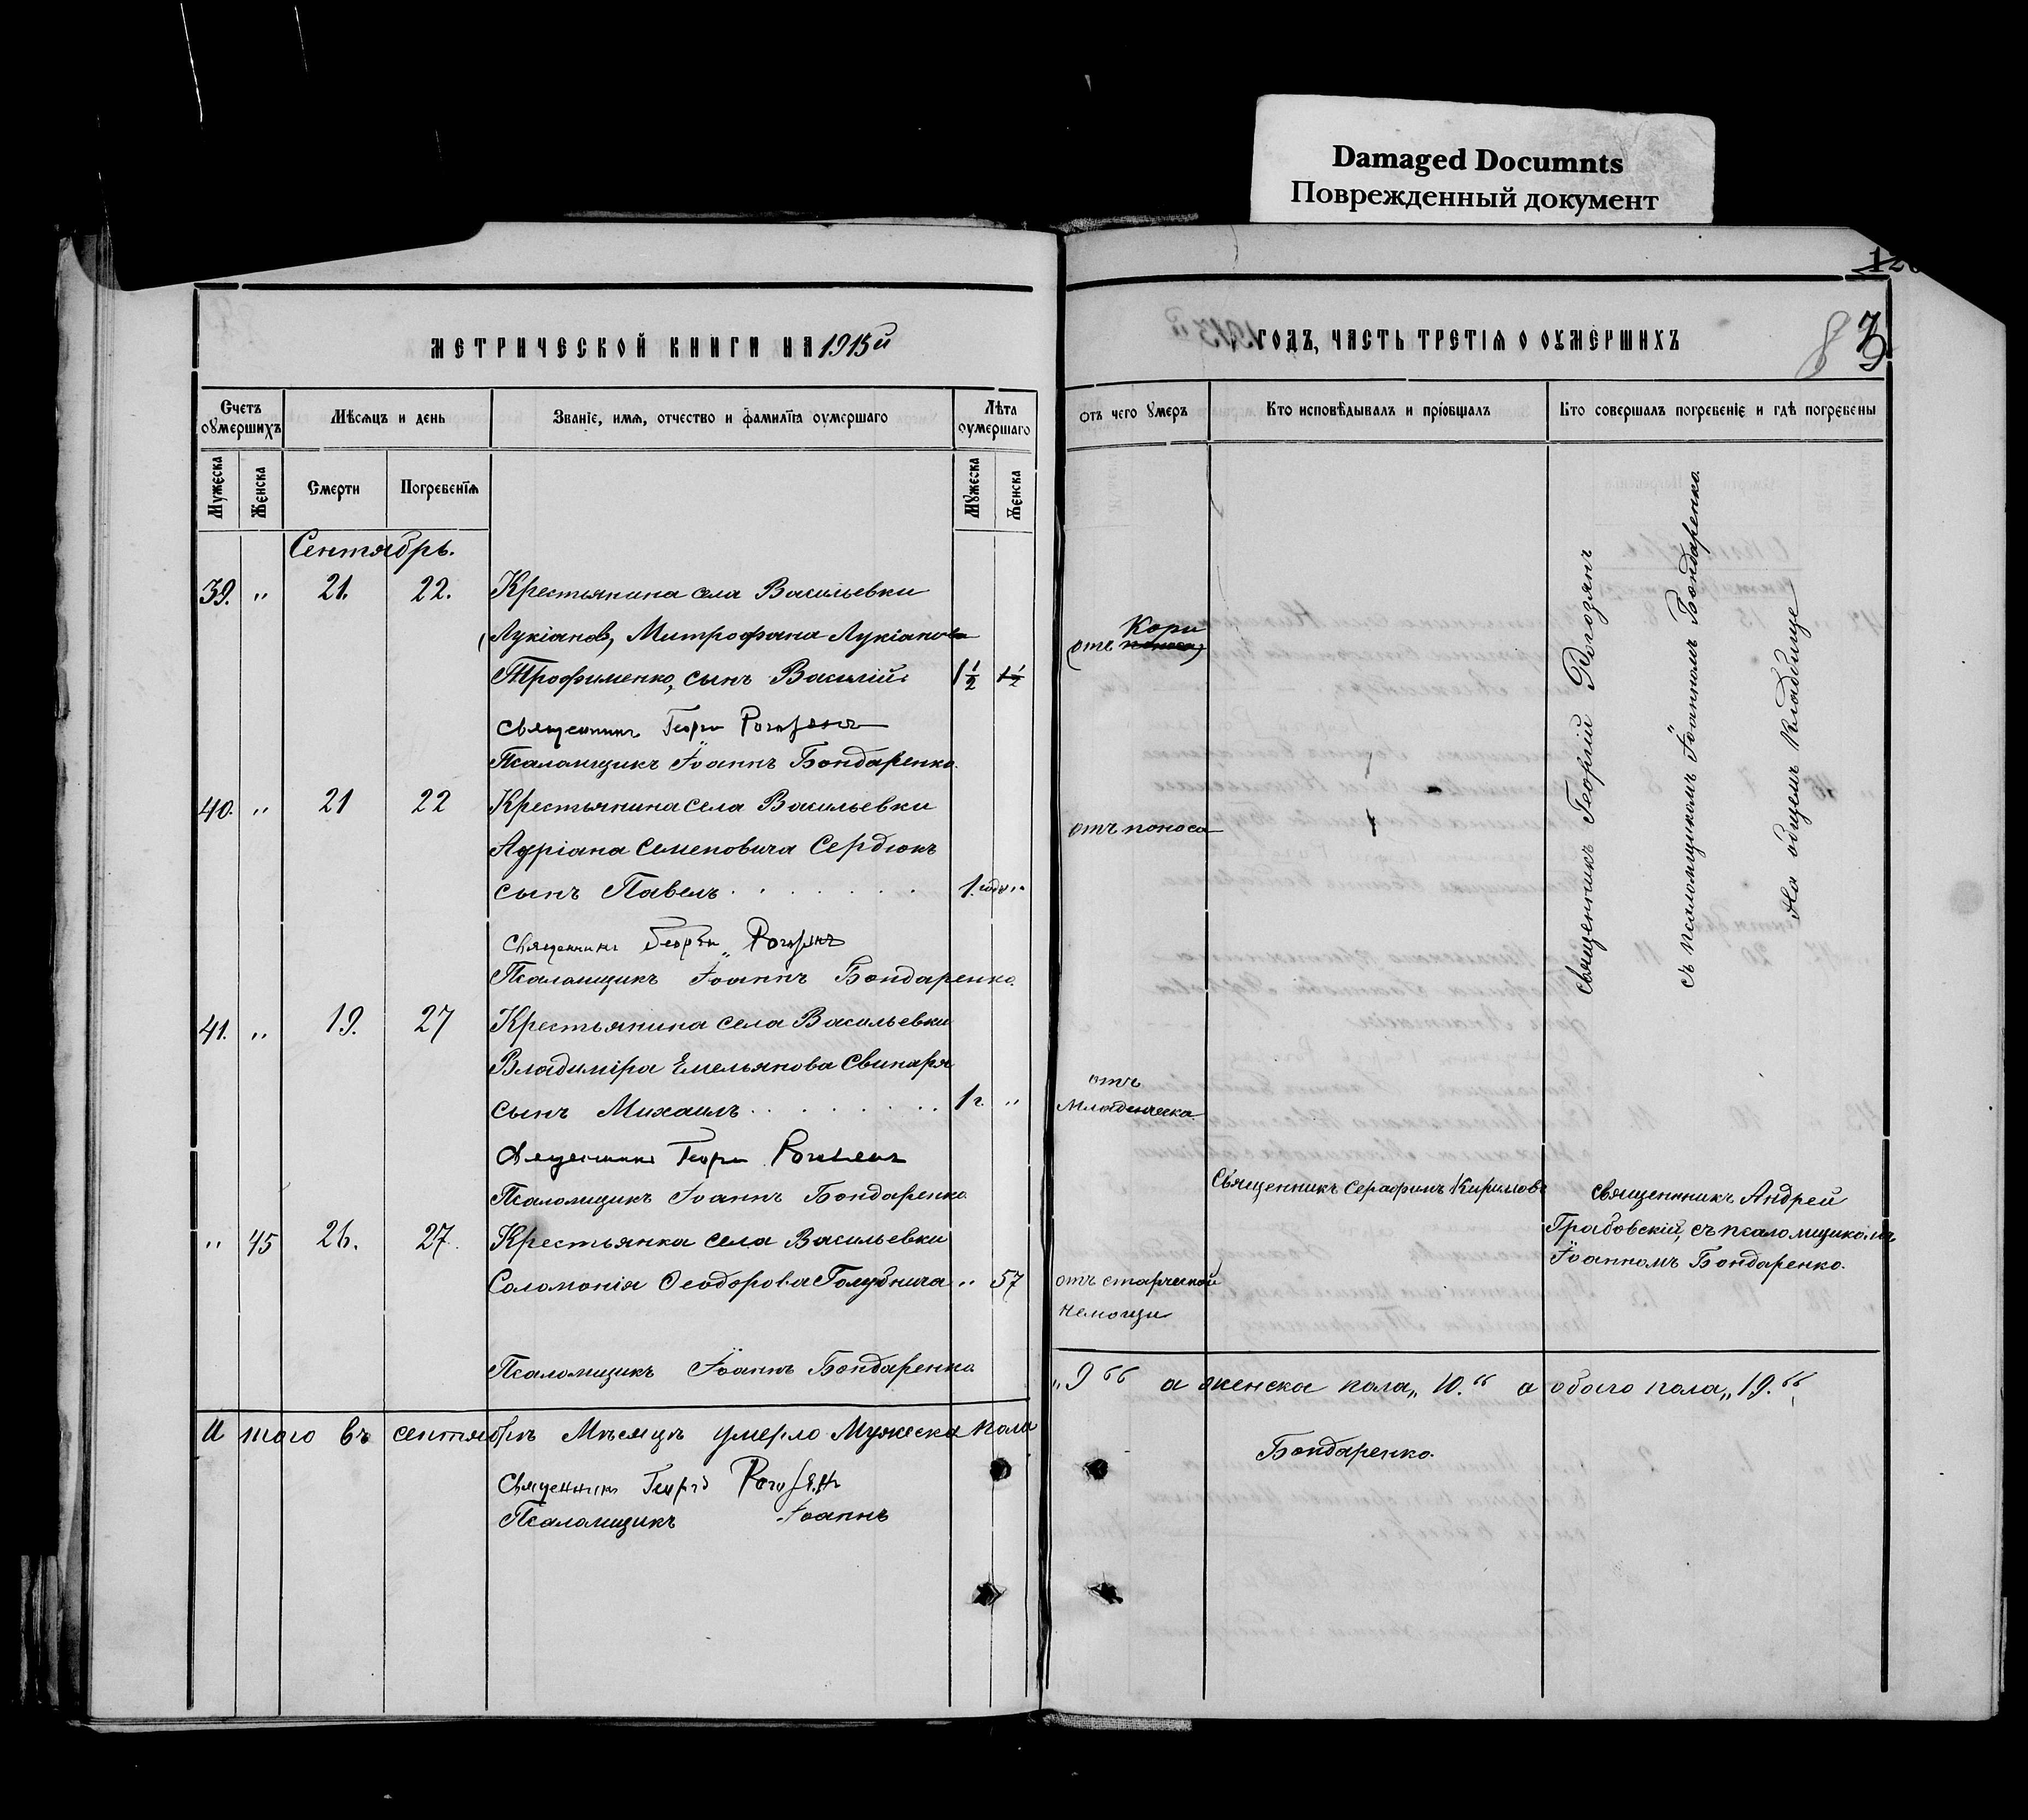 Damaged Documnts
Поврежденный документ
МЕТРИЧЕСКОЙ КНИГИ НА 1913й
ГОДЪ, ЧАСТЬ ТРЕТІЯ О ОУМЕРШИХЪ
Счетъ оумершихъ
Мѣсяцъ и день
Званіе, имя, отчество и фамилія оумершаго
Лѣта оумершаго
Отъ чего умеръ
Кто исповѣдывалъ и пріобщалъ
Кто совершалъ погребеніе и гдѣ погребены
Мужеска
Женска
Смерти
Погребенія
Мужеска
Женска
Сентябрь.
39. „ 21. 22. Крестьянина села Васильевки
(Лукіанов, Митрофана Лукіанова
Трофименко, сынъ Василій 1½ 1½
Кори
(отъ поноса)
Священникъ Георгій Рогозянъ
Псаломщикъ Іоаннъ Бондаренко.
40. „ 21 22 Крестьянина села Васильевки
Адріана Семеновича Сердюкъ
сынъ Павелъ 1. годъ „
отъ поноса
Священникъ Георгій Рогозянъ
Псаломщикъ Іоаннъ Бондаренко.
41. „ 19. 27 Крестьянина села Васильевки
Владиміра Емельянова Свинаря
сынъ Михаилъ 1 г. „
отъ
младенческа
Священникъ Георгій Рогозянъ
Псаломщикъ Іоаннъ Бондаренко
Священникъ Георгій Рогозянъ
съ псаломщикомъ Іоанномъ Бондаренко.
На общемъ кладбище
„ 45 26. 27. Крестьянка села Васильевки
Соломонія Ѳеодорова Голубнича „ 57
отъ старческой
немощи
Священникъ Серафимъ Кириловъ
Священникъ Андрей
Грабовскій, съ псаломщикомъ
Іоанномъ Бондаренко.
Псаломщикъ Іоаннъ Бондаренко
И того въ сентябрѣ мѣсяцѣ умерло мужеска пола
„9“ а женска пола „10.“ а обоего пола „19.“
Священникъ Георгій Рогозянъ
Псаломщикъ Іоаннъ
Бондаренко.